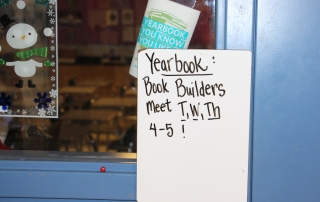 YEARBOOK
YOU KNOW
YOU LIKE
Yearbook:
Book Builders
meet T, W, Th
4-5 !